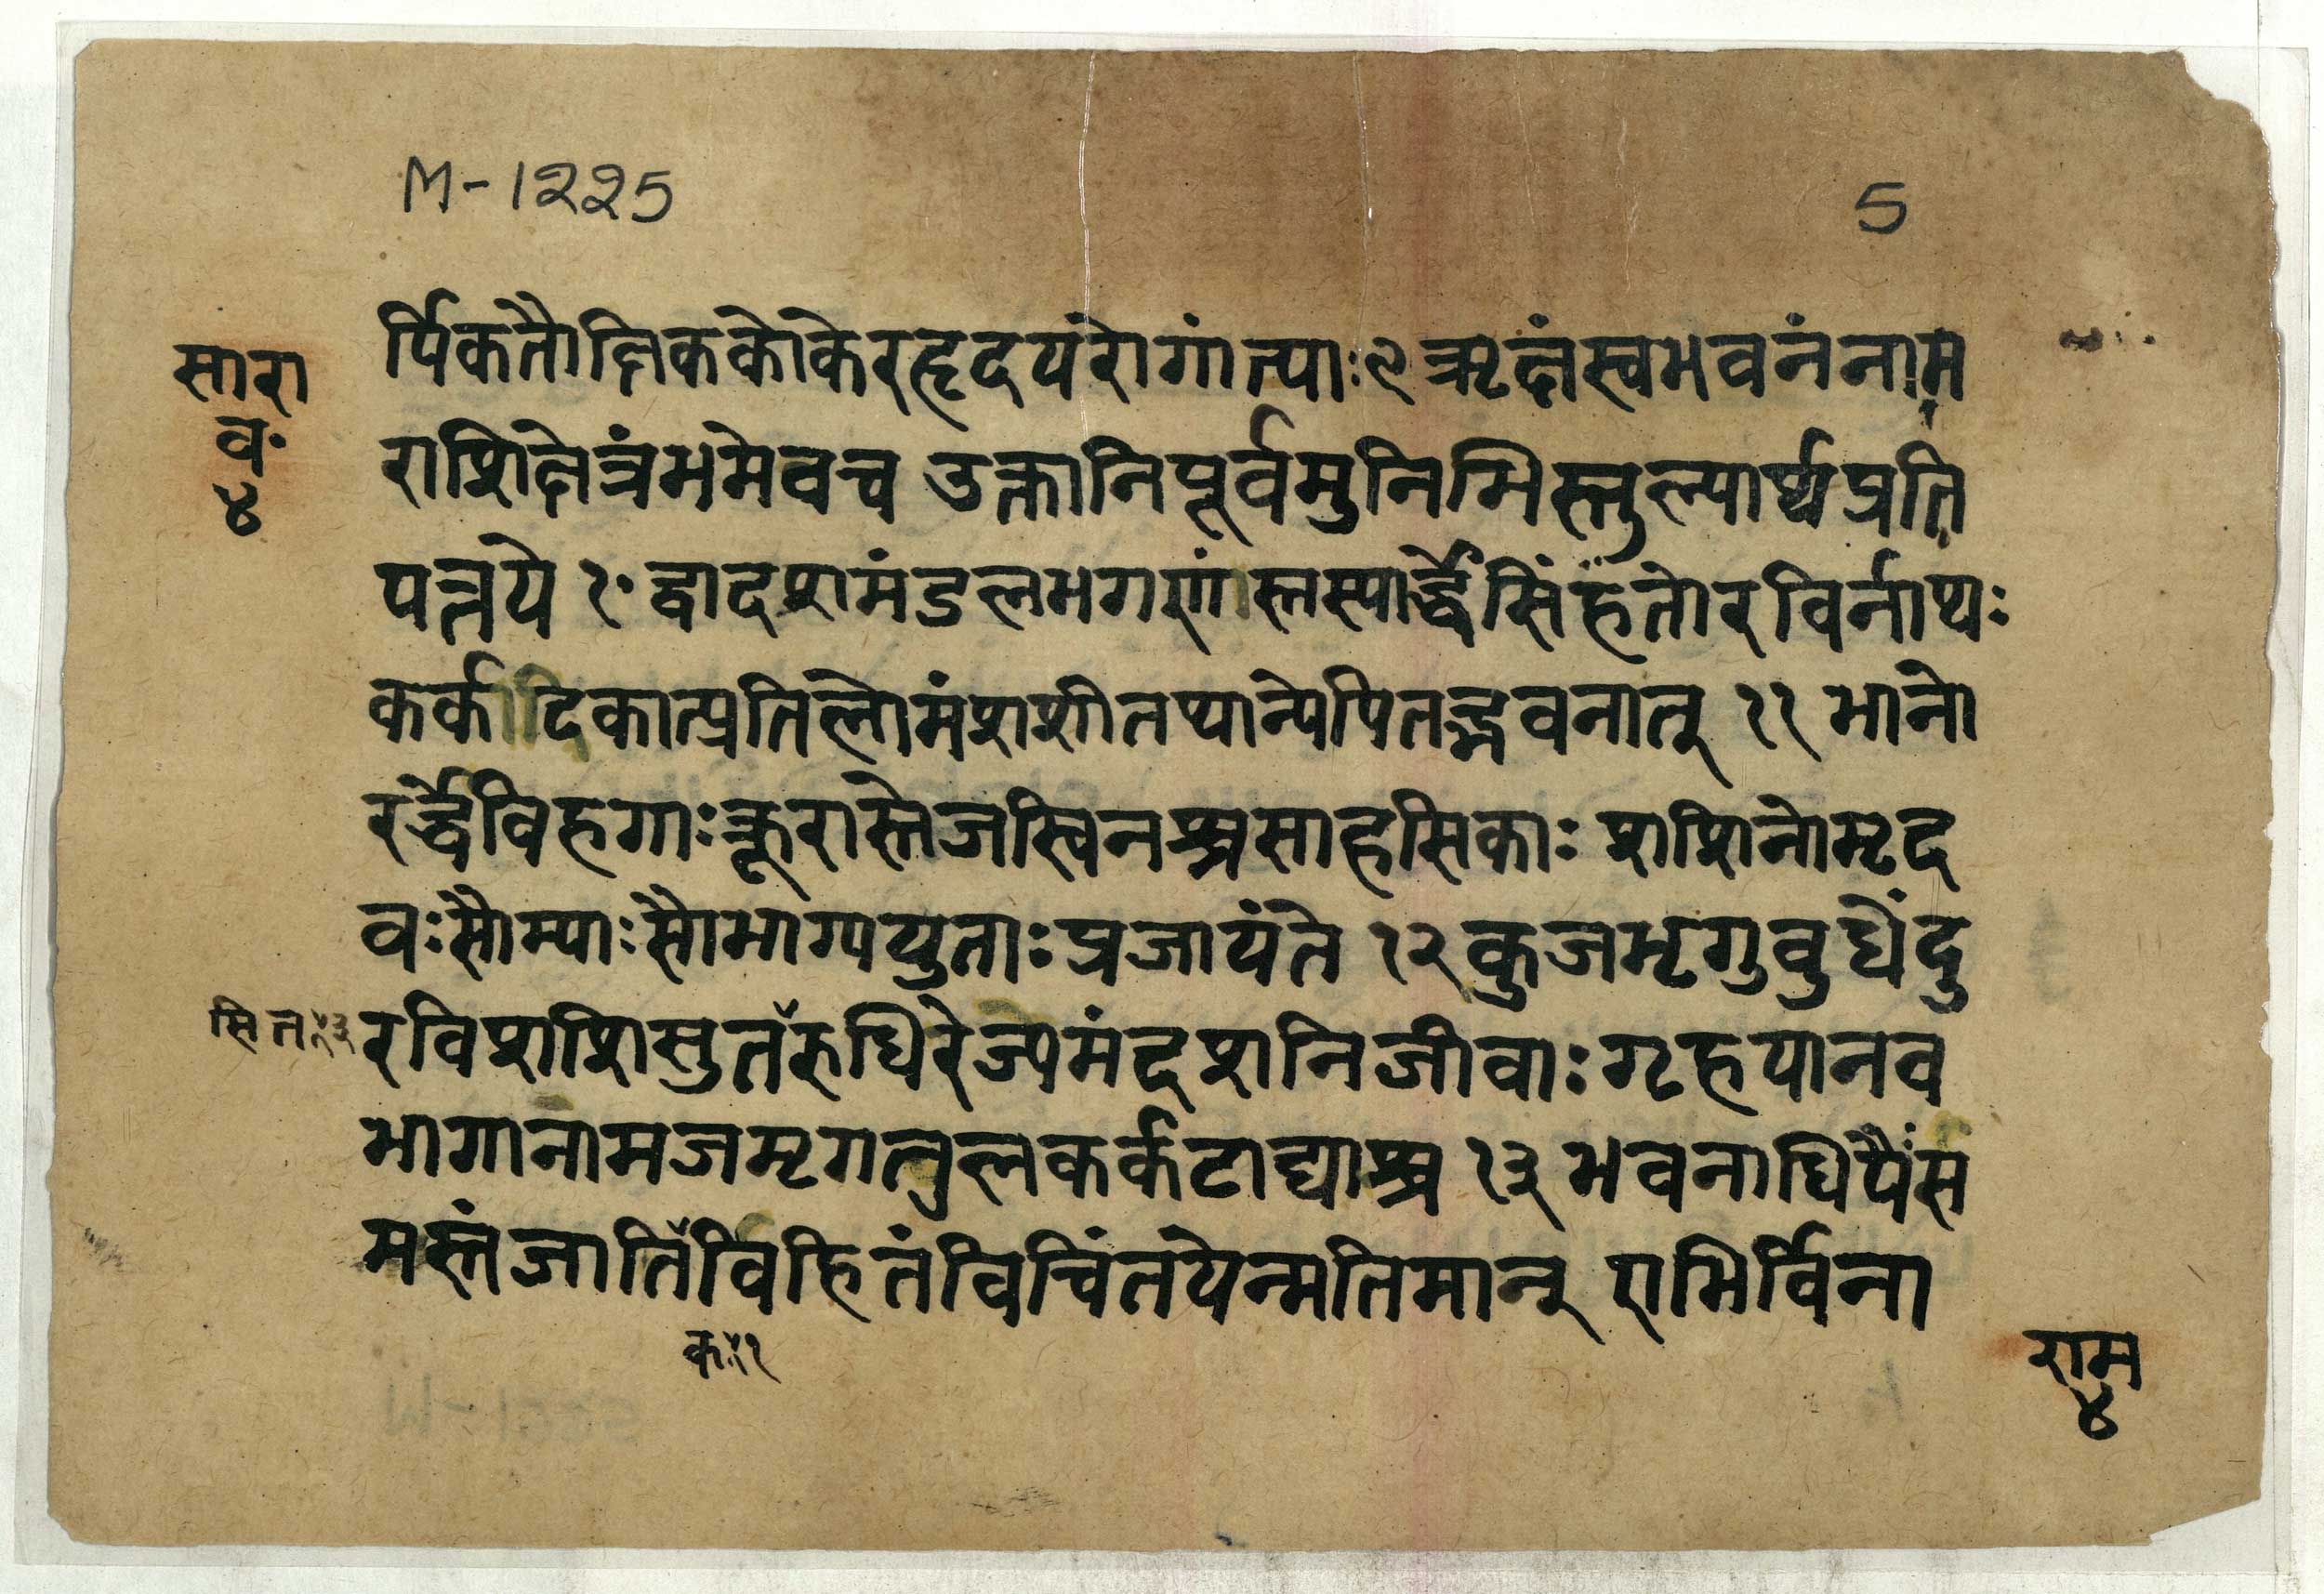 M-1225
5
सारा
व॰
४
र्पिकतौक्षिककोकेरहृदयंरोगांत्याः ९ ऋक्षंस्वभवनंनाम
राशिक्षेत्रंभमेवच उक्तानिपूर्वमुनिभिस्तुल्यार्थप्रति
पत्तये १॰ द्वादशमंडलभगणंस्तस्यार्द्धेसिंहतोरविर्नाथः
कर्कादिकात्प्रतिलोमंशशीतथान्येपितद्भवनात् ११ भानो
रर्द्धेविहगाःक्रूरास्तेजस्विनश्चसाहसिकाः शशिनोमृद
वःसौम्याःसौभाग्ययुताःप्रजायंते १२ कुजभृगुबुधेंदु
सित ३ रविशशिसुतरुधिरेज्यमंदशनिजीवाः गृहपानव
भागानामजमृगतुलकर्कटाद्याश्च १३ भवनाधिपैःस
मस्तंजातिविहितंविचिंतयेन्मतिमान् राभिर्विना
क १
राम
४